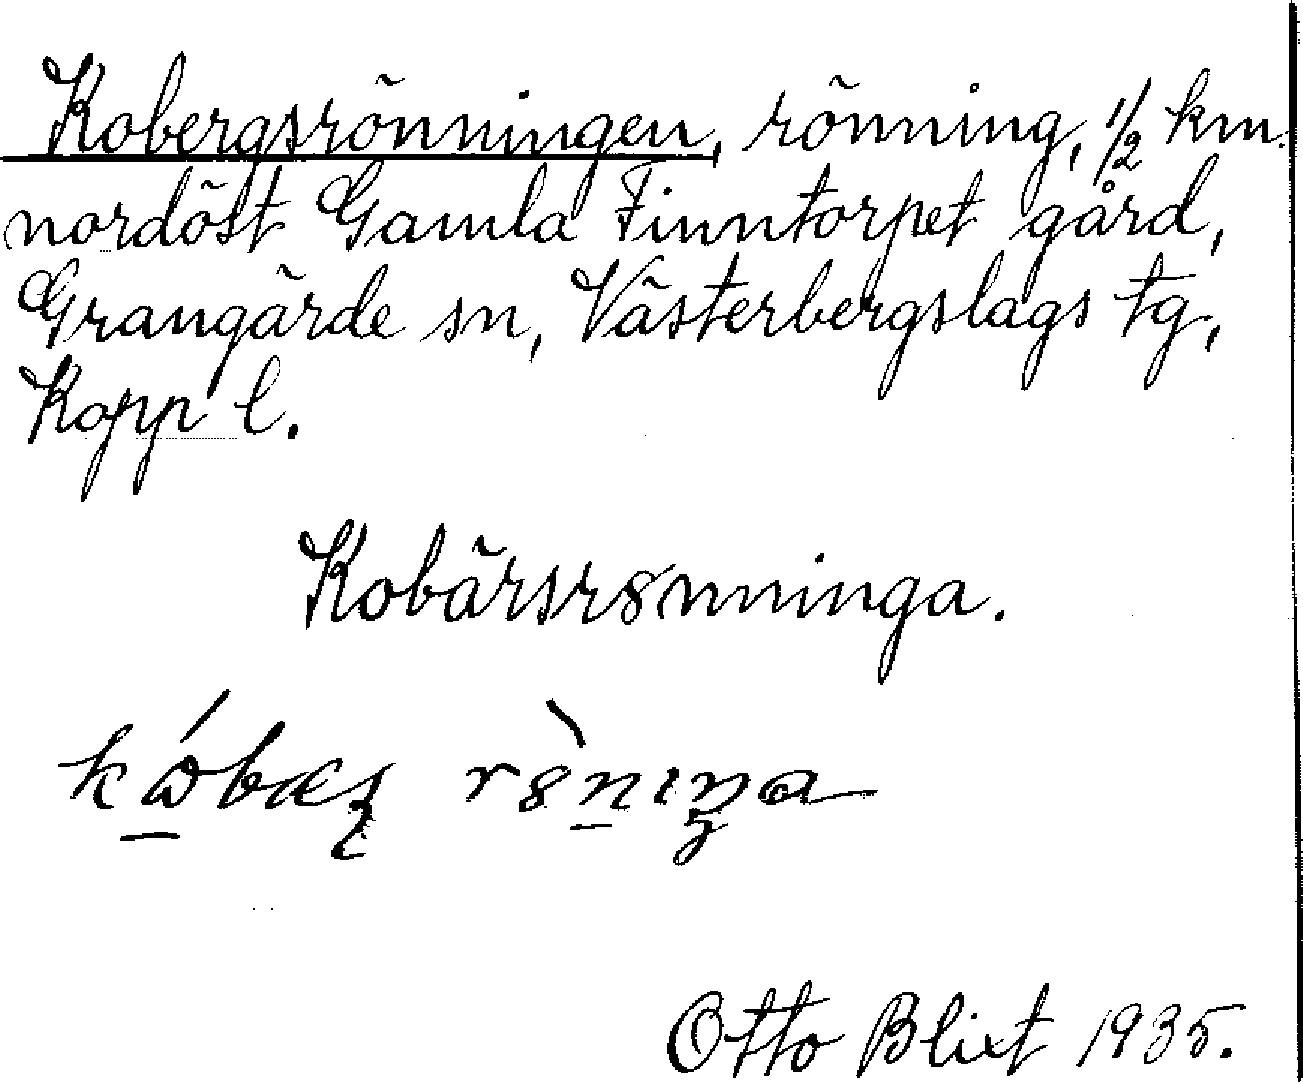 Kobergsrönningen, rönning, 1/2 km.
nordöst Gamla Finntorpet gård,
Grangärde sn, Västerbergslags tg,
Kopp l.
Kobärsr8nninga.
Otto Blixt 1935.